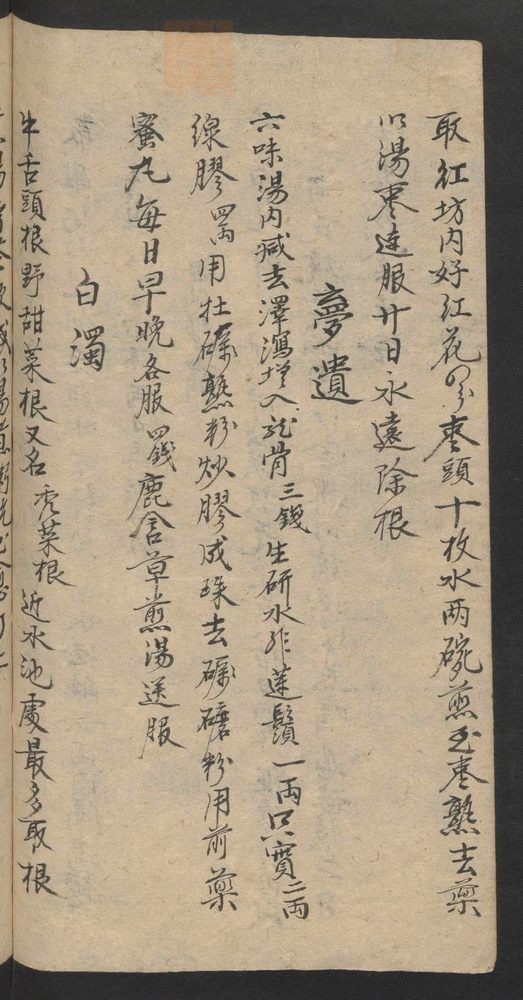 取紅坊内好紅花四分棗頭十枚水两碗煎至棗熟去藥
以湯棗連服廿日永遠除根
夢遺
六味湯内減去澤瀉增入龍骨三錢生研水飛蓮鬚一兩芡實二兩
線膠四兩用牡礪熟粉炒膠成珠去礪磨粉用前藥
蜜丸每日早晚各服四錢鹿含草煎湯送服
白濁
牛舌頭根野甜菜根又名禿菜根近水池處最多取根